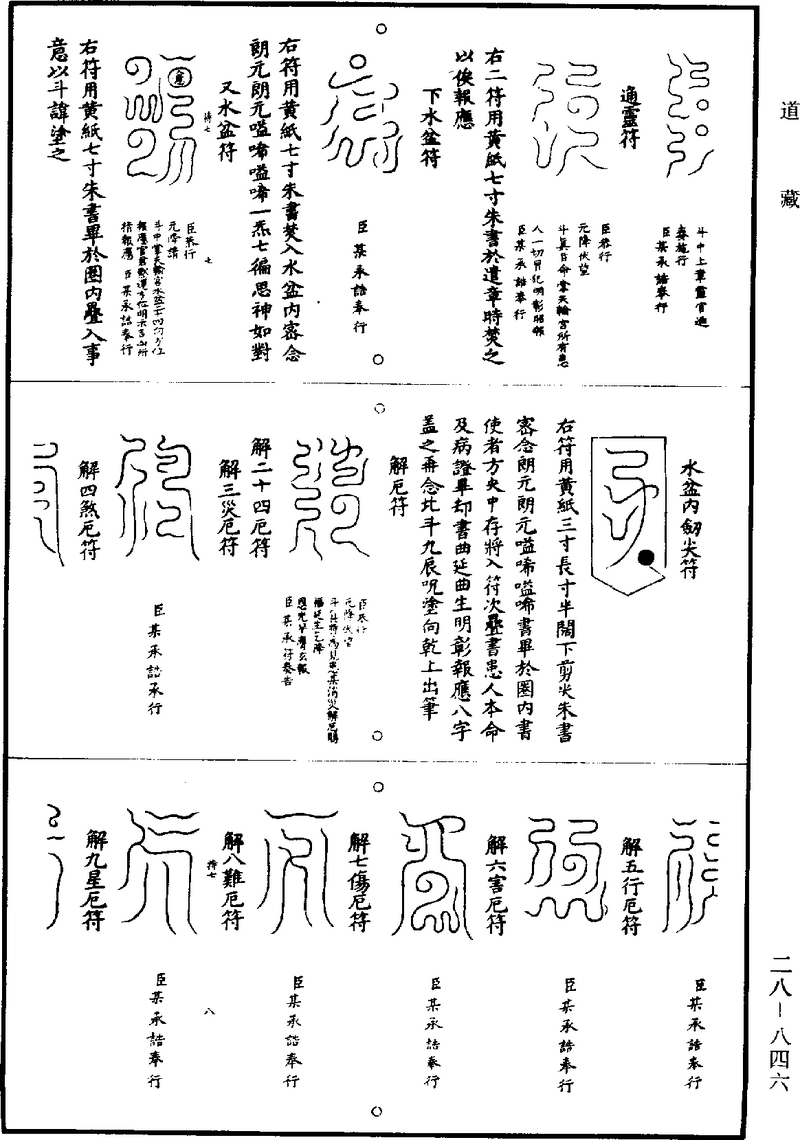 道藏
斗中上章靈官遍
奏施行
臣某承誥奉行
通靈符
臣恭行
元降伏望
斗真自命掌天輪宮所有患
人一切冐犯明彰昭報
臣某承誥奉行
右二符用黃紙七寸朱書於遣章時焚之
以俟報應
下水盆符
臣某承誥奉行
右符用黃紙七寸朱書焚入水盆內密念
朗元朗元嗌唏嗌唏一炁七徧思神如對
又水盆符
持七
七
臣恭行
元降請
斗中掌天輪宮水盆二十四向方位
臣某承誥奉行
右符用黃紙七寸朱書畢於圈內疊入事
意以斗諱塗之
水盆內劒尖符
右符用黃紙三寸長寸半闊下剪尖朱書
密念朗元朗元嗌唏嗌唏書畢於圈內書
使者方央中存將入符次疊書患人本命
及病證畢却書曲延曲生明彰報應八字
蓋之再念北斗九辰呪塗向乾上出筆
解厄符
臣恭行
元降伏望
恩光早膺玄報
臣某承符奏告
解二十四厄符
解三災厄符
臣某承誥承行
解四煞厄符
臣某承誥奉行
解五行厄符
臣某承誥奉行
解六害厄符
臣某承誥奉行
解七傷厄符
臣某承誥奉行
八
解八難厄符
持七
臣某承誥奉行
解九星厄符
二八－八四六